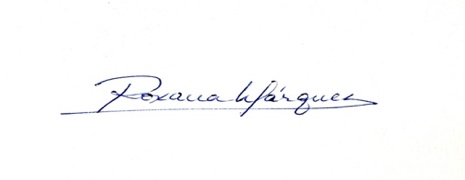 Roxana Márquez